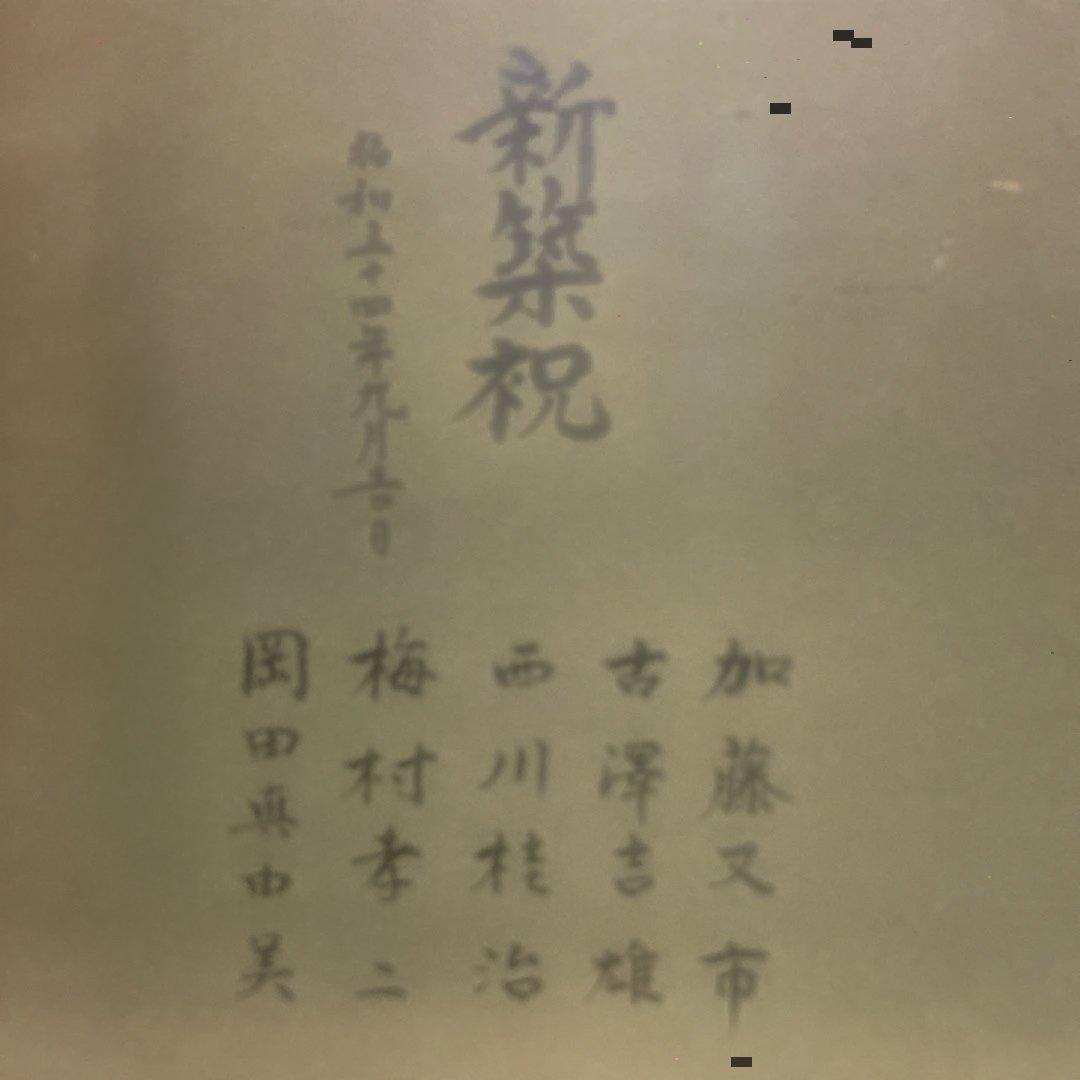 新築祝
昭和五十四年九月吉日
加藤又市
古澤吉雄
西川桂治
梅村孝二
岡田真由美